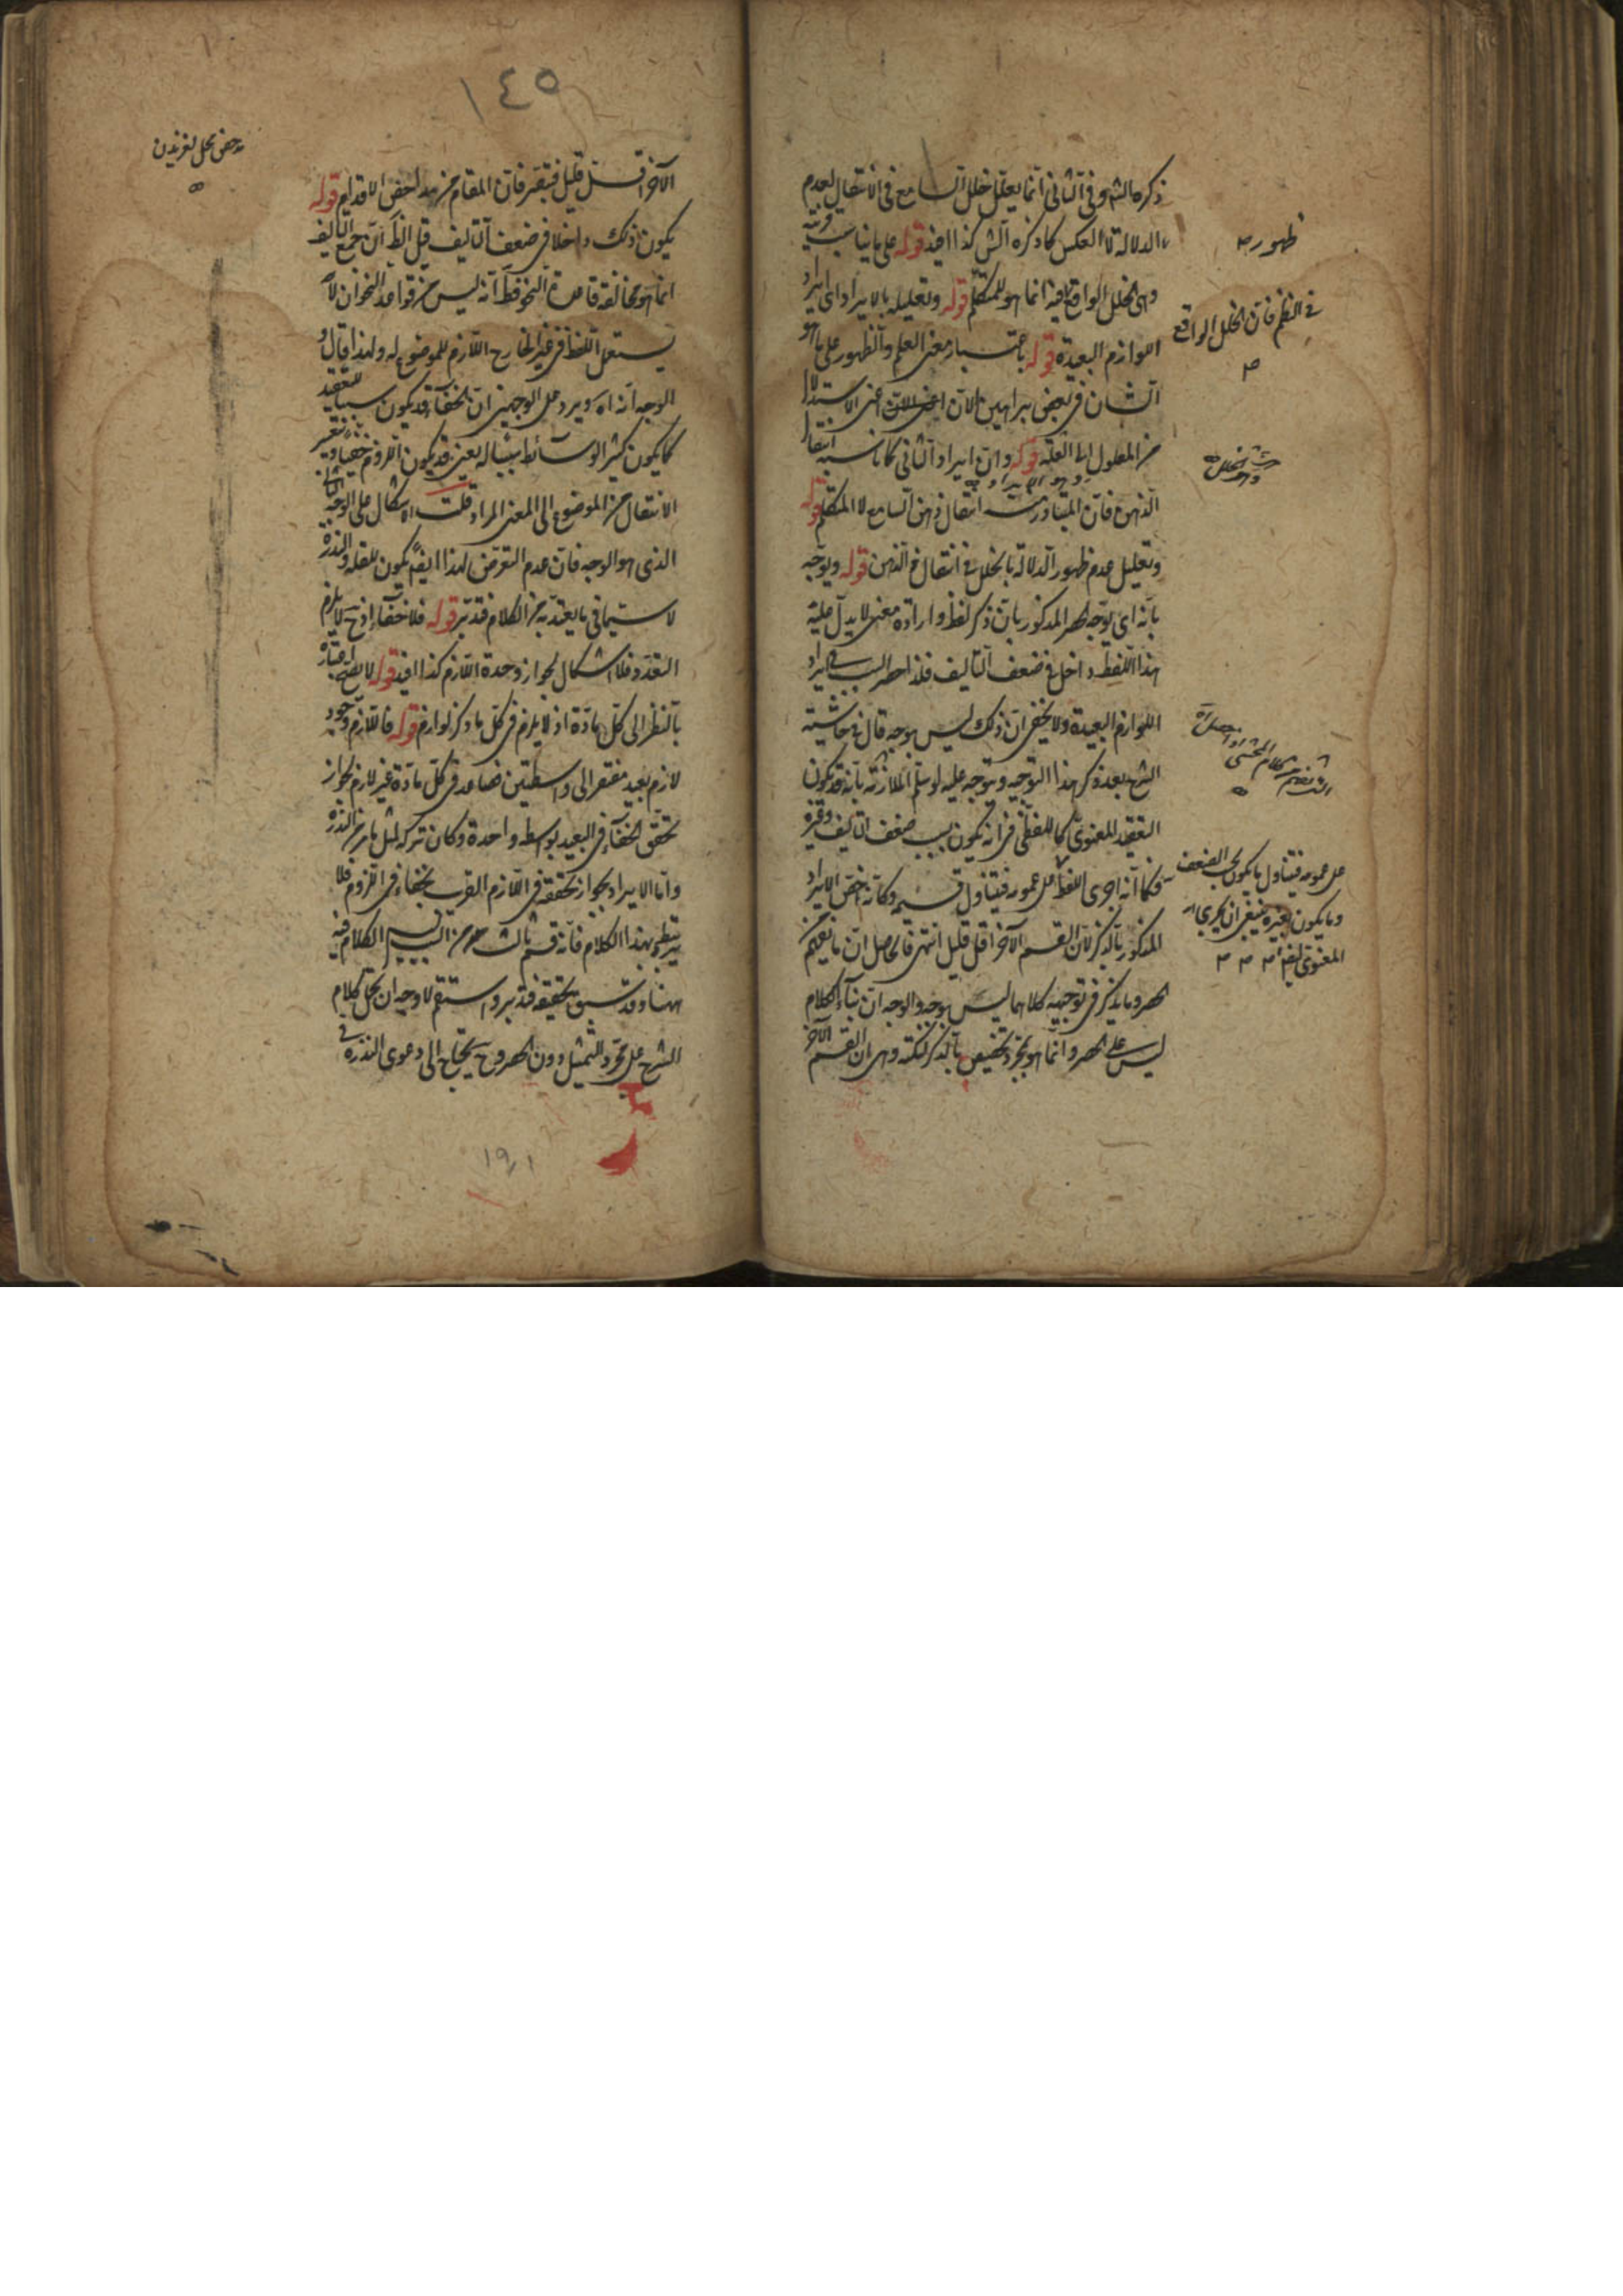 ذكره الشه وفى الثانى انما يعلل خلل السامع فى الانتقال لعدم
الدلالة لا العكس كما ذكره الش كذا افيد قوله على ما يناسب قرينة
وهى الخلل الواقع فيه انما هو للمتكلم قوله وتعليله بالايراد اى ايراد
اللوازم البعيدة قوله باعتبار معنى العلم والظهور على ما هو
الشان فى بعض براهين الان اعنى الاستدلال
من المعلول الى العلة قوله وان ايراد الثانى كما ناسب انتقال
الذهن فان المتبادر منه انتقال ذهن السامع لا المتكلم قوله
وتعليل عدم ظهور الدلالة بالخلل فى انتقال الذهن قوله ويوجه
بانه اى يوجه الحصر المذكور بان ذكر لفظ وارادة معنى لا يدل عليه
هذا اللفظ داخل فى ضعف التاليف فلذا حصر السبب فى ايراد
اللوازم البعيدة ولا يخفى ان ذلك ليس بوجه قال فى حاشيته
الشرح بعد ذكر هذا التوجيه ويتوجه عليه لو سلم الملازمة بانه قد يكون
التعقيد المعنوى كاللفظى فى انه يكون بسبب ضعف التاليف وغيره
فكما انه اجرى اللفظ على عمومه فيتناول قسميه وكانه خص الايراد
المذكور بالذكر لان القسم الآخر اقل قليل انتهى فالحاصل ان ما يفهم من
الحصر وما يذكر فى توجيهه كلاهما ليس بوجه والوجه ان بناء الكلام
ليس على الحصر وانما هو مجرد تخصيص بالذكر لنكتة وهى ان القسم الآخر
ظهور ص
فى النظم فان الخلل الواقع
ص
على عمومه فيتناول ما يكون بحسب الضعف
وما يكون بغيره ينبغى ان يجرى
المعنوى ايضا ص ص ص
١٤٥
الآخر اقل قليل فتبصر فان المقام من مداحض الاقدام قوله
يكون ذلك داخلا فى ضعف التاليف قيل الظ ان جمع التاليف
انما هو مخالفة قاعدة النحو فظ انه ليس من قواعد النحو ان لا
يستعمل اللفظ فى غير الخارج اللازم للموضوع له ولهذا قال و
الوجه انه اه ويرد على الوجهين ان الخفاء قد يكون سببا للتعقيد
كما يكون كثير الوسائط سببا له يعنى قد يكون اللزوم خفيا ويتعسر
الانتقال من الموضوع الى المعنى المراد قلت الاشكال على الوجه الثانى
الذى هو الوجه فان عدم التعرض لهذا ايضا يكون للقلة والندرة
لا سيما فى ما يعتد به من الكلام فتدبر قوله فلا خفاء اذ ح لا يلزم
التعدد فلا اشكال لجواز وحدة اللازم كذا افيد قوله لا يصح اعتباره
بالنظر الى كل مادة اذ لا يلزم فى كل ما ذكر لوازم قوله فاللازم وجود
لازم بعيد مفتقر الى واسطتين فصاعدا فى كل مادة غير لازم لجواز
تحقق الخفاء فى البعيد بواسطة واحدة وكان تركه لمثل ما مر من الندرة
واما الايراد بجواز تحققه فى اللازم القريب بخفاء فى اللزوم فلا
يرتبط بهذا الكلام فانه قسم ثالث من السبب ليس الكلام فيه
ههنا وقد سبق تحقيقه فتدبر واستقم لا وجه ان يحمل كلام
الشرح على مجرد التمثيل دون الحصر وح يحتاج الى دعوى الندرة فى
١٩١